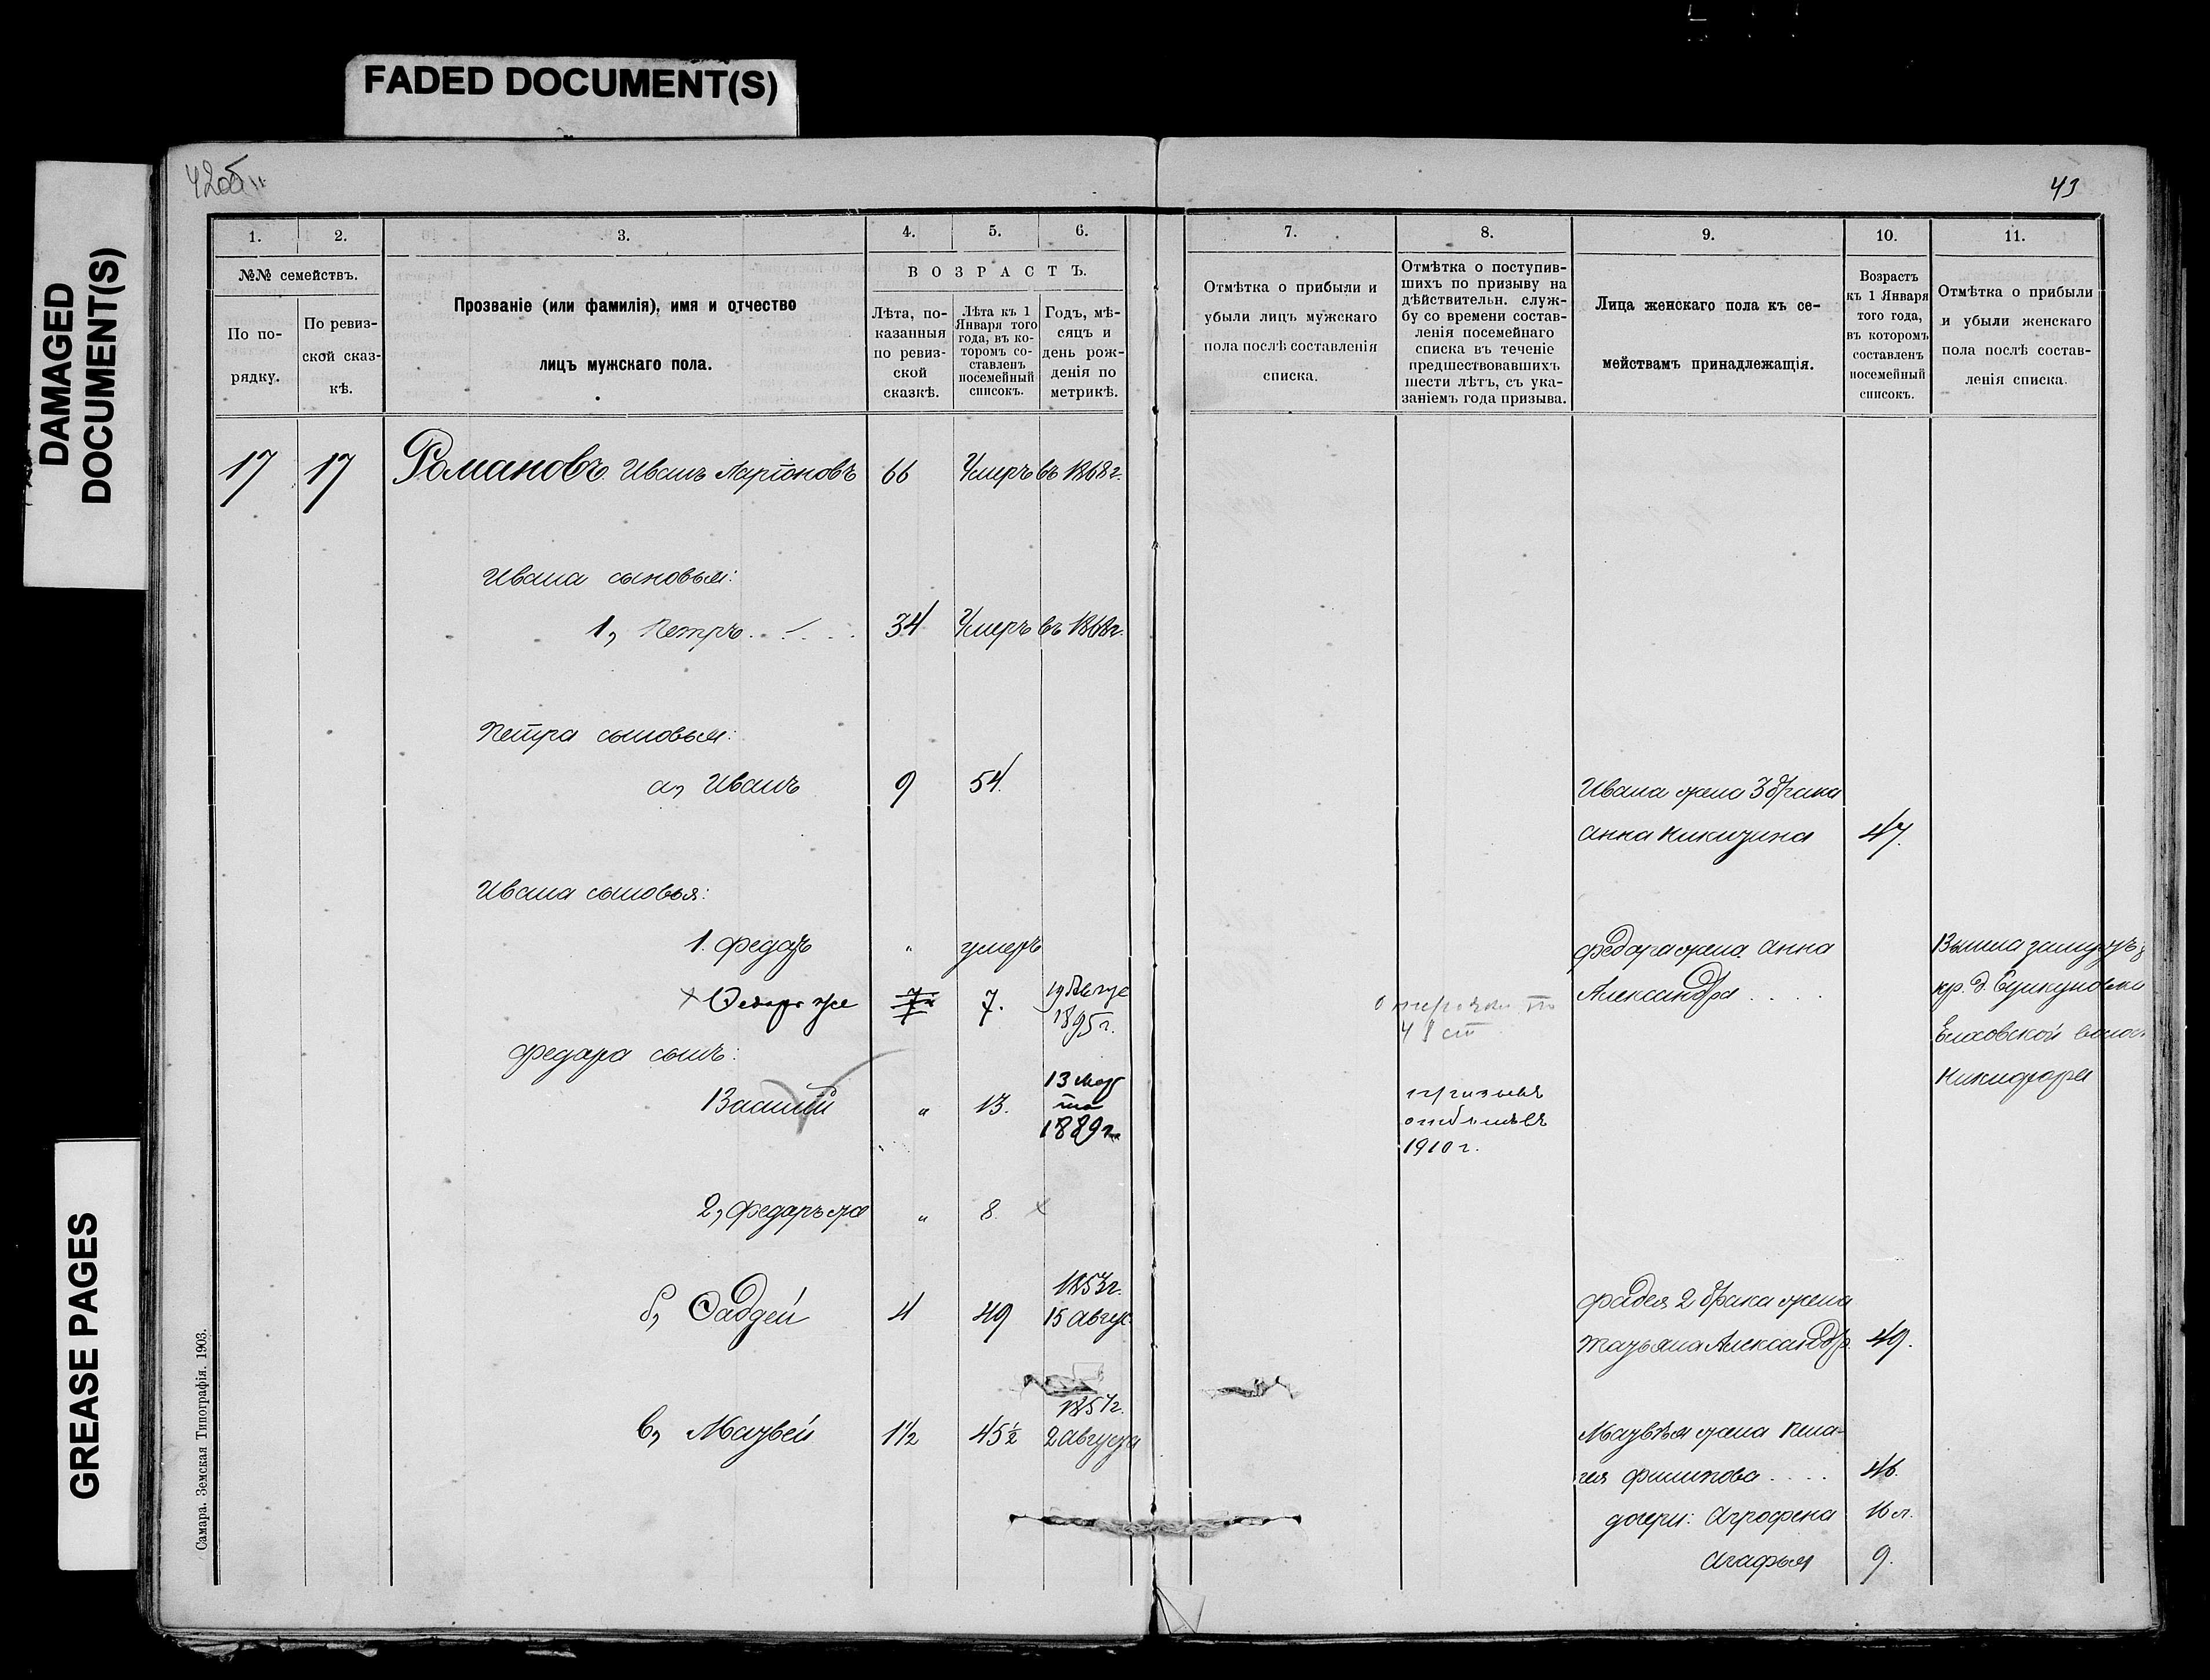 FADED DOCUMENT(S)
DAMAGED
DOCUMENT(S)
GREASE PAGES
42об
43
1.
2.
3.
4.
5.
6.
№№ семействъ.
По по-
рядку.
По ревиз-
ской сказ-
кѣ.
Прозваніе (или фамилія), имя и отчество
лицъ мужскаго пола.
ВОЗРАСТЪ.
Лѣта, по-
казанныя
по ревиз-
ской
сказкѣ.
Лѣта къ 1
Января того
года, въ ко-
торомъ со-
ставленъ
посемейный
списокъ.
Годъ, мѣ-
сяцъ и
день рож-
денія по
метрикѣ.
7.
8.
9.
10.
11.
Отмѣтка о прибыли и
убыли лицъ мужскаго
пола послѣ составленія
списка.
Отмѣтка о поступив-
шихъ по призыву на
дѣйствительн. служ-
бу со времени состав-
ленія посемейнаго
списка въ теченіе
предшествовавшихъ
шести лѣтъ, съ ука-
заніемъ года призыва.
Лица женскаго пола къ се-
мействамъ принадлежащія.
Возрастъ
къ 1 Января
того года,
въ которомъ
составленъ
посемейный
списокъ.
Отмѣтка о прибыли
и убыли женскаго
пола послѣ состав-
ленія списка.
17 17 Романовъ Иванъ Ларіоновъ 66 Умеръ въ 1868г.
Ивана сыновья:
1, Петръ 34 Умеръ въ 1868г.
Петра сыновья:
а, Иванъ 9 54.
Ивана жена 3 брака
Анна Никитина 47.
Ивана сыновья:
1. Федоръ " умеръ
Федора жена Анна
Александр....
Вышла замужъ
кр. д.
Елховской
Никифора
+ Федоръ же 7. 19
1895 г.
4
Федора сынъ:
Василій " 13. 13 мар
та
1889 г.
призывъ
1910 г.
2, Федоръ же " 8. х
б, Фаддей 4 49 1853г.
15 Авгус
Фадея 2 брака жена
Татьяна Александр. 49.
в, Матвей 1½ 45½ 1857г.
2 Августа
Матвѣя жена Пела-
гея Филипова.... 46.
дочери: Агрофена 16 л.
Агафья 9.
Самара. Земская Типографія. 1903.